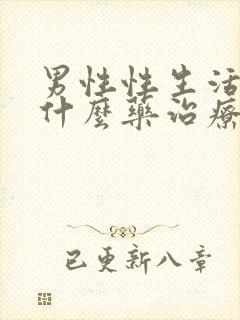 男性性生活
什麼藥治療
已更新八章